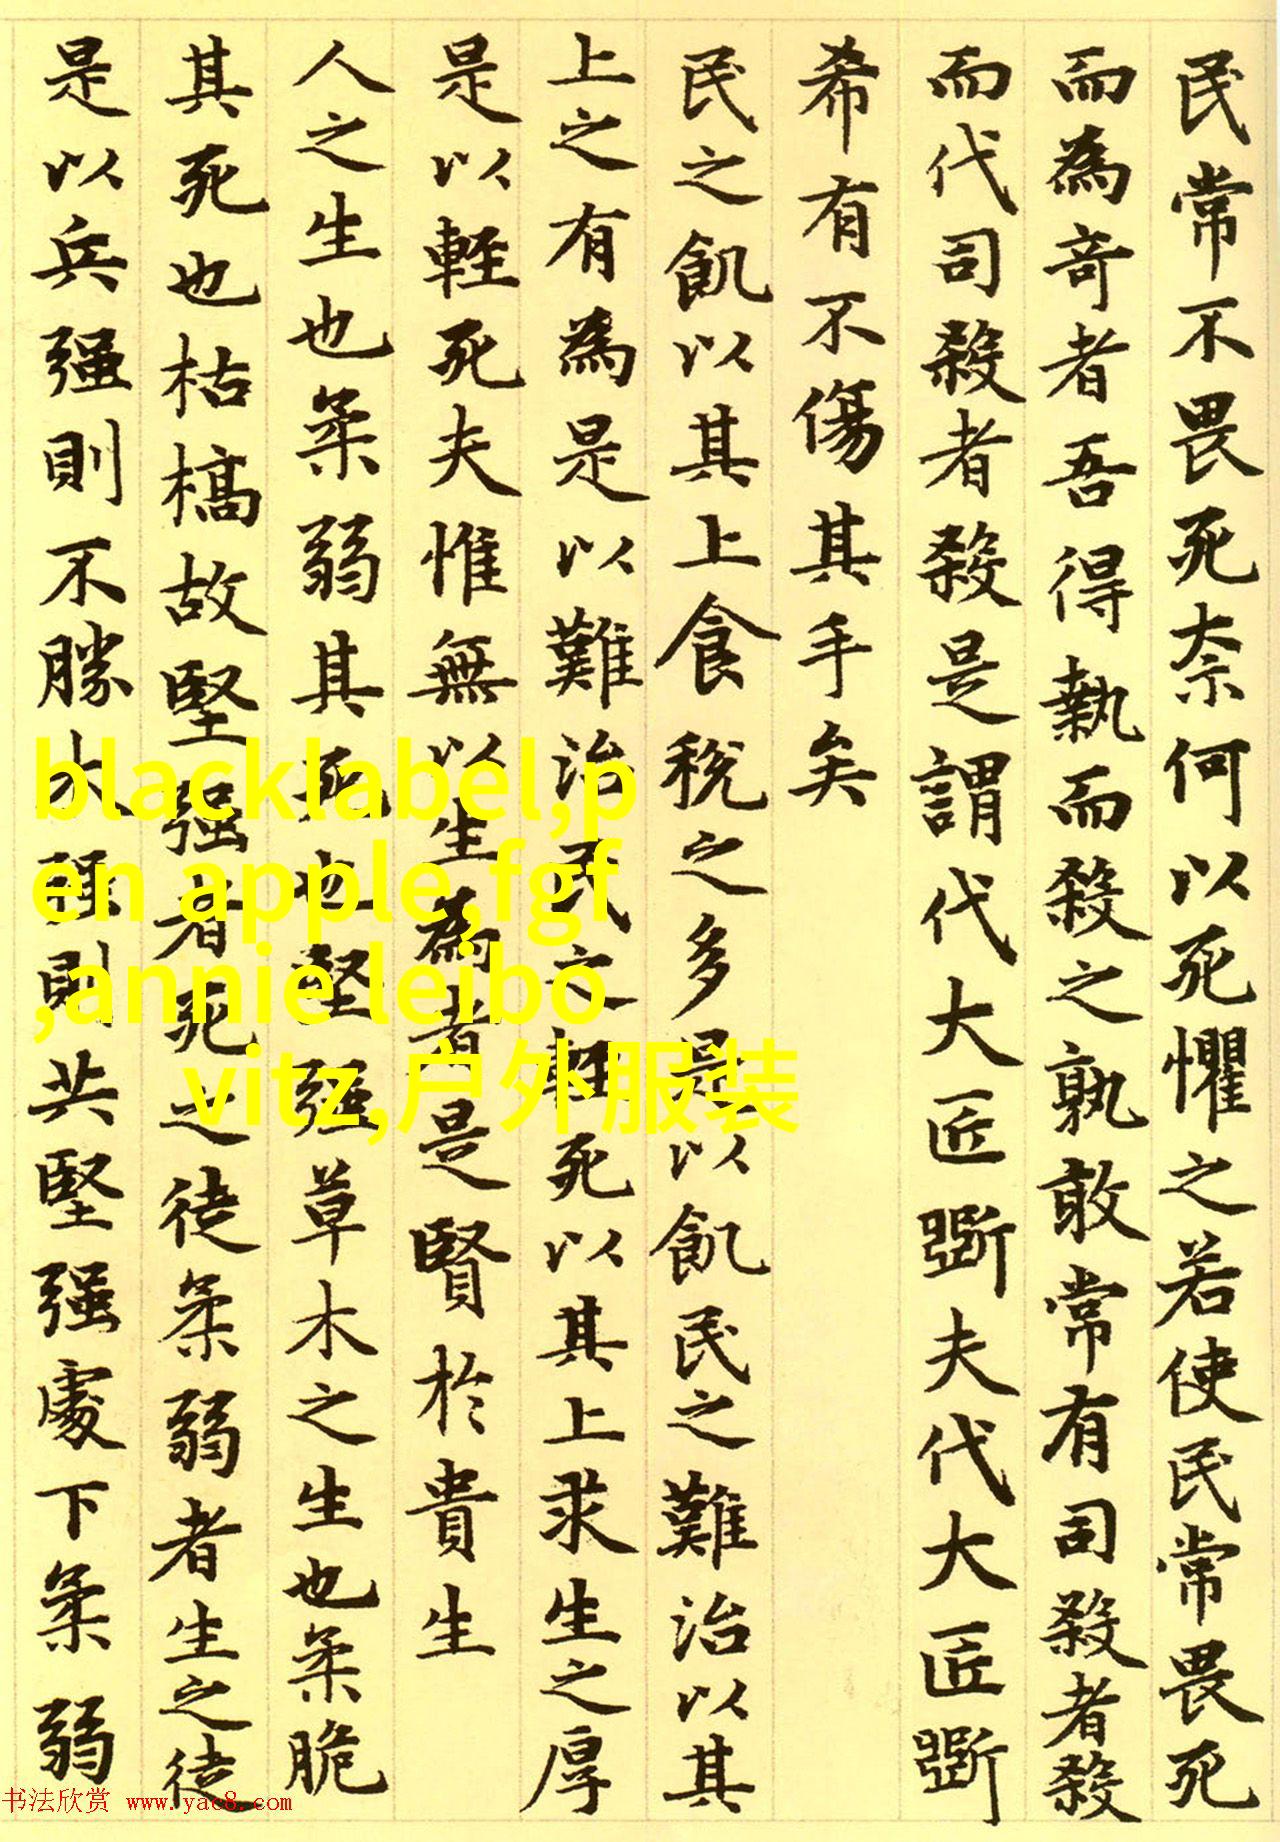 民常不畏死奈何以死懼之若使民常畏死
而為奇者吾得執而殺之孰敢常有司殺者殺
而代司殺者殺是謂代大匠斲夫代大匠斲
希有不傷其手矣
民之飢以其上食稅之多是以飢民之難治以其
上之有為是以難治民之輕死以其上求生之厚
是以輕死夫惟無以生為者是賢於貴生
人之生也柔弱其死也堅强草木之生也柔脆
其死也枯槁故堅强者死之徒柔弱者生之徒
是以兵强則不勝木强則共堅强處下柔弱
blacklabel,p
en apple,fgf
,annie leibo
vitz,户外服装
书法欣赏 www.yac8.com